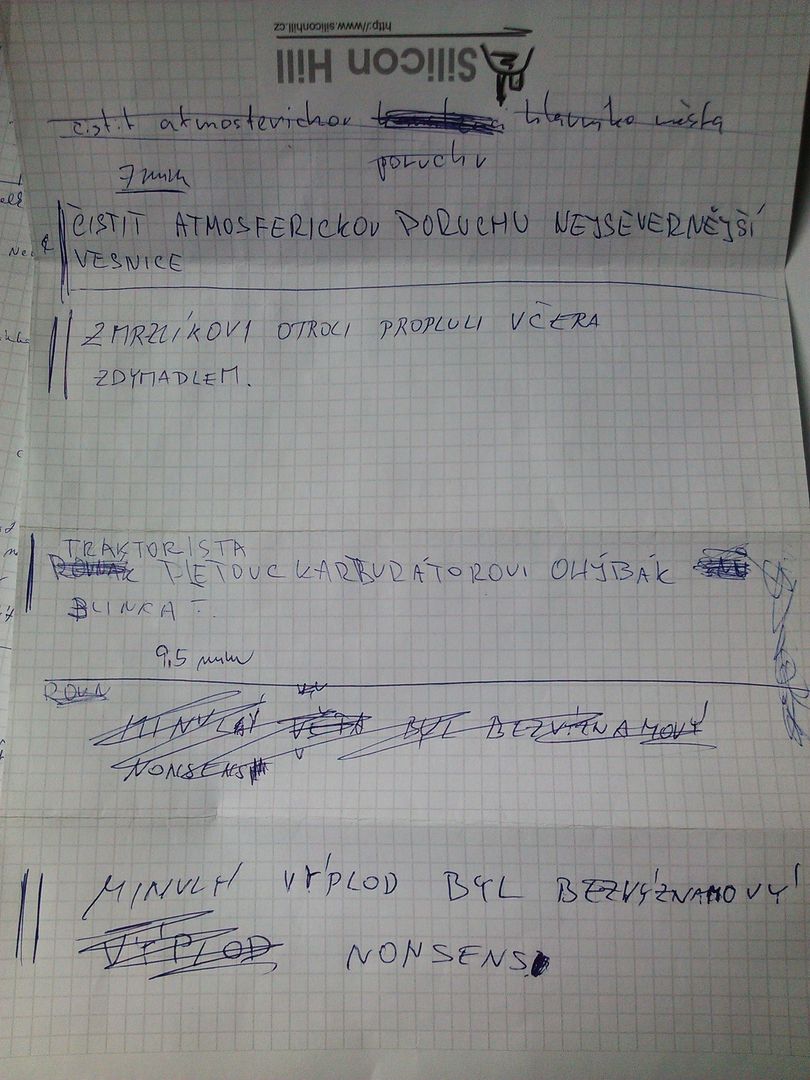 http://www.siliconhill.cz
Silicon Hill
čistit atmosferickou hlavního města
poruchu
7 mm
ČISTIT ATMOSFERICKOU PORUCHU NEJSEVERNĚJŠÍ
VESNICE
ZMRZLÍKOVI OTROCI PROPLULI VČERA
ZDYMADLEM.
TRAKTORISTA
PLETOUC KARBURÁTOROVI OHÝBÁK
BLINKAT.
9,5 mm
ROVN
MINULÁ VĚTA BYL BEZVÝZNAMOVÝ
NONSENS
MINULÝ VÝPLOD BYL BEZVÝZNAMOVÝ
VÝPLOD NONSENS